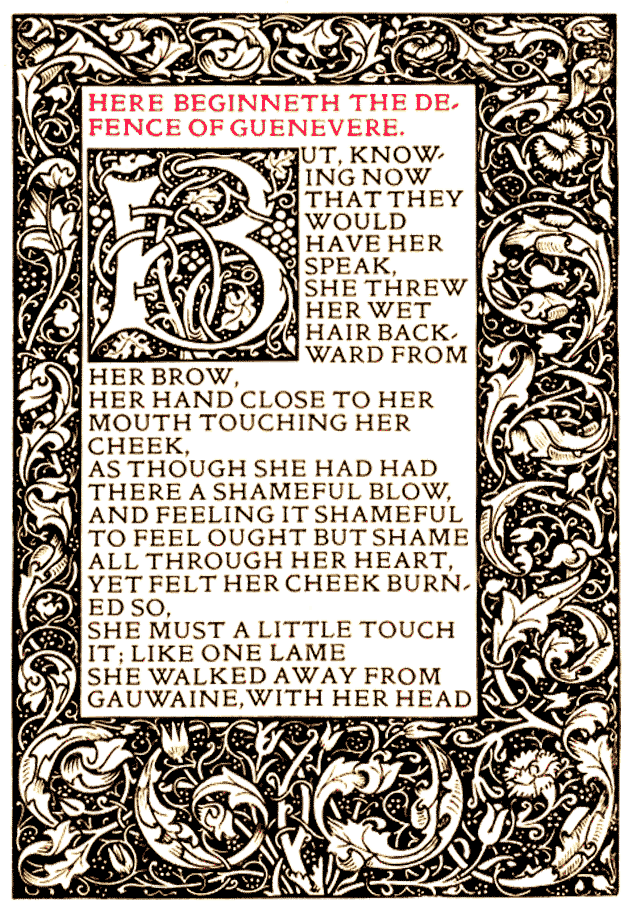 HERE BEGINNETH THE DE-
FENCE OF GUENEVERE.
BUT, KNOW-
ING NOW
THAT THEY
WOULD
HAVE HER
SPEAK,
SHE THREW
HER WET
HAIR BACK-
WARD FROM
HER BROW,
HER HAND CLOSE TO HER
MOUTH TOUCHING HER
CHEEK,
AS THOUGH SHE HAD HAD
THERE A SHAMEFUL BLOW,
AND FEELING IT SHAMEFUL
TO FEEL OUGHT BUT SHAME
ALL THROUGH HER HEART,
YET FELT HER CHEEK BURN-
ED SO,
SHE MUST A LITTLE TOUCH
IT; LIKE ONE LAME
SHE WALKED AWAY FROM
GAUWAINE, WITH HER HEAD